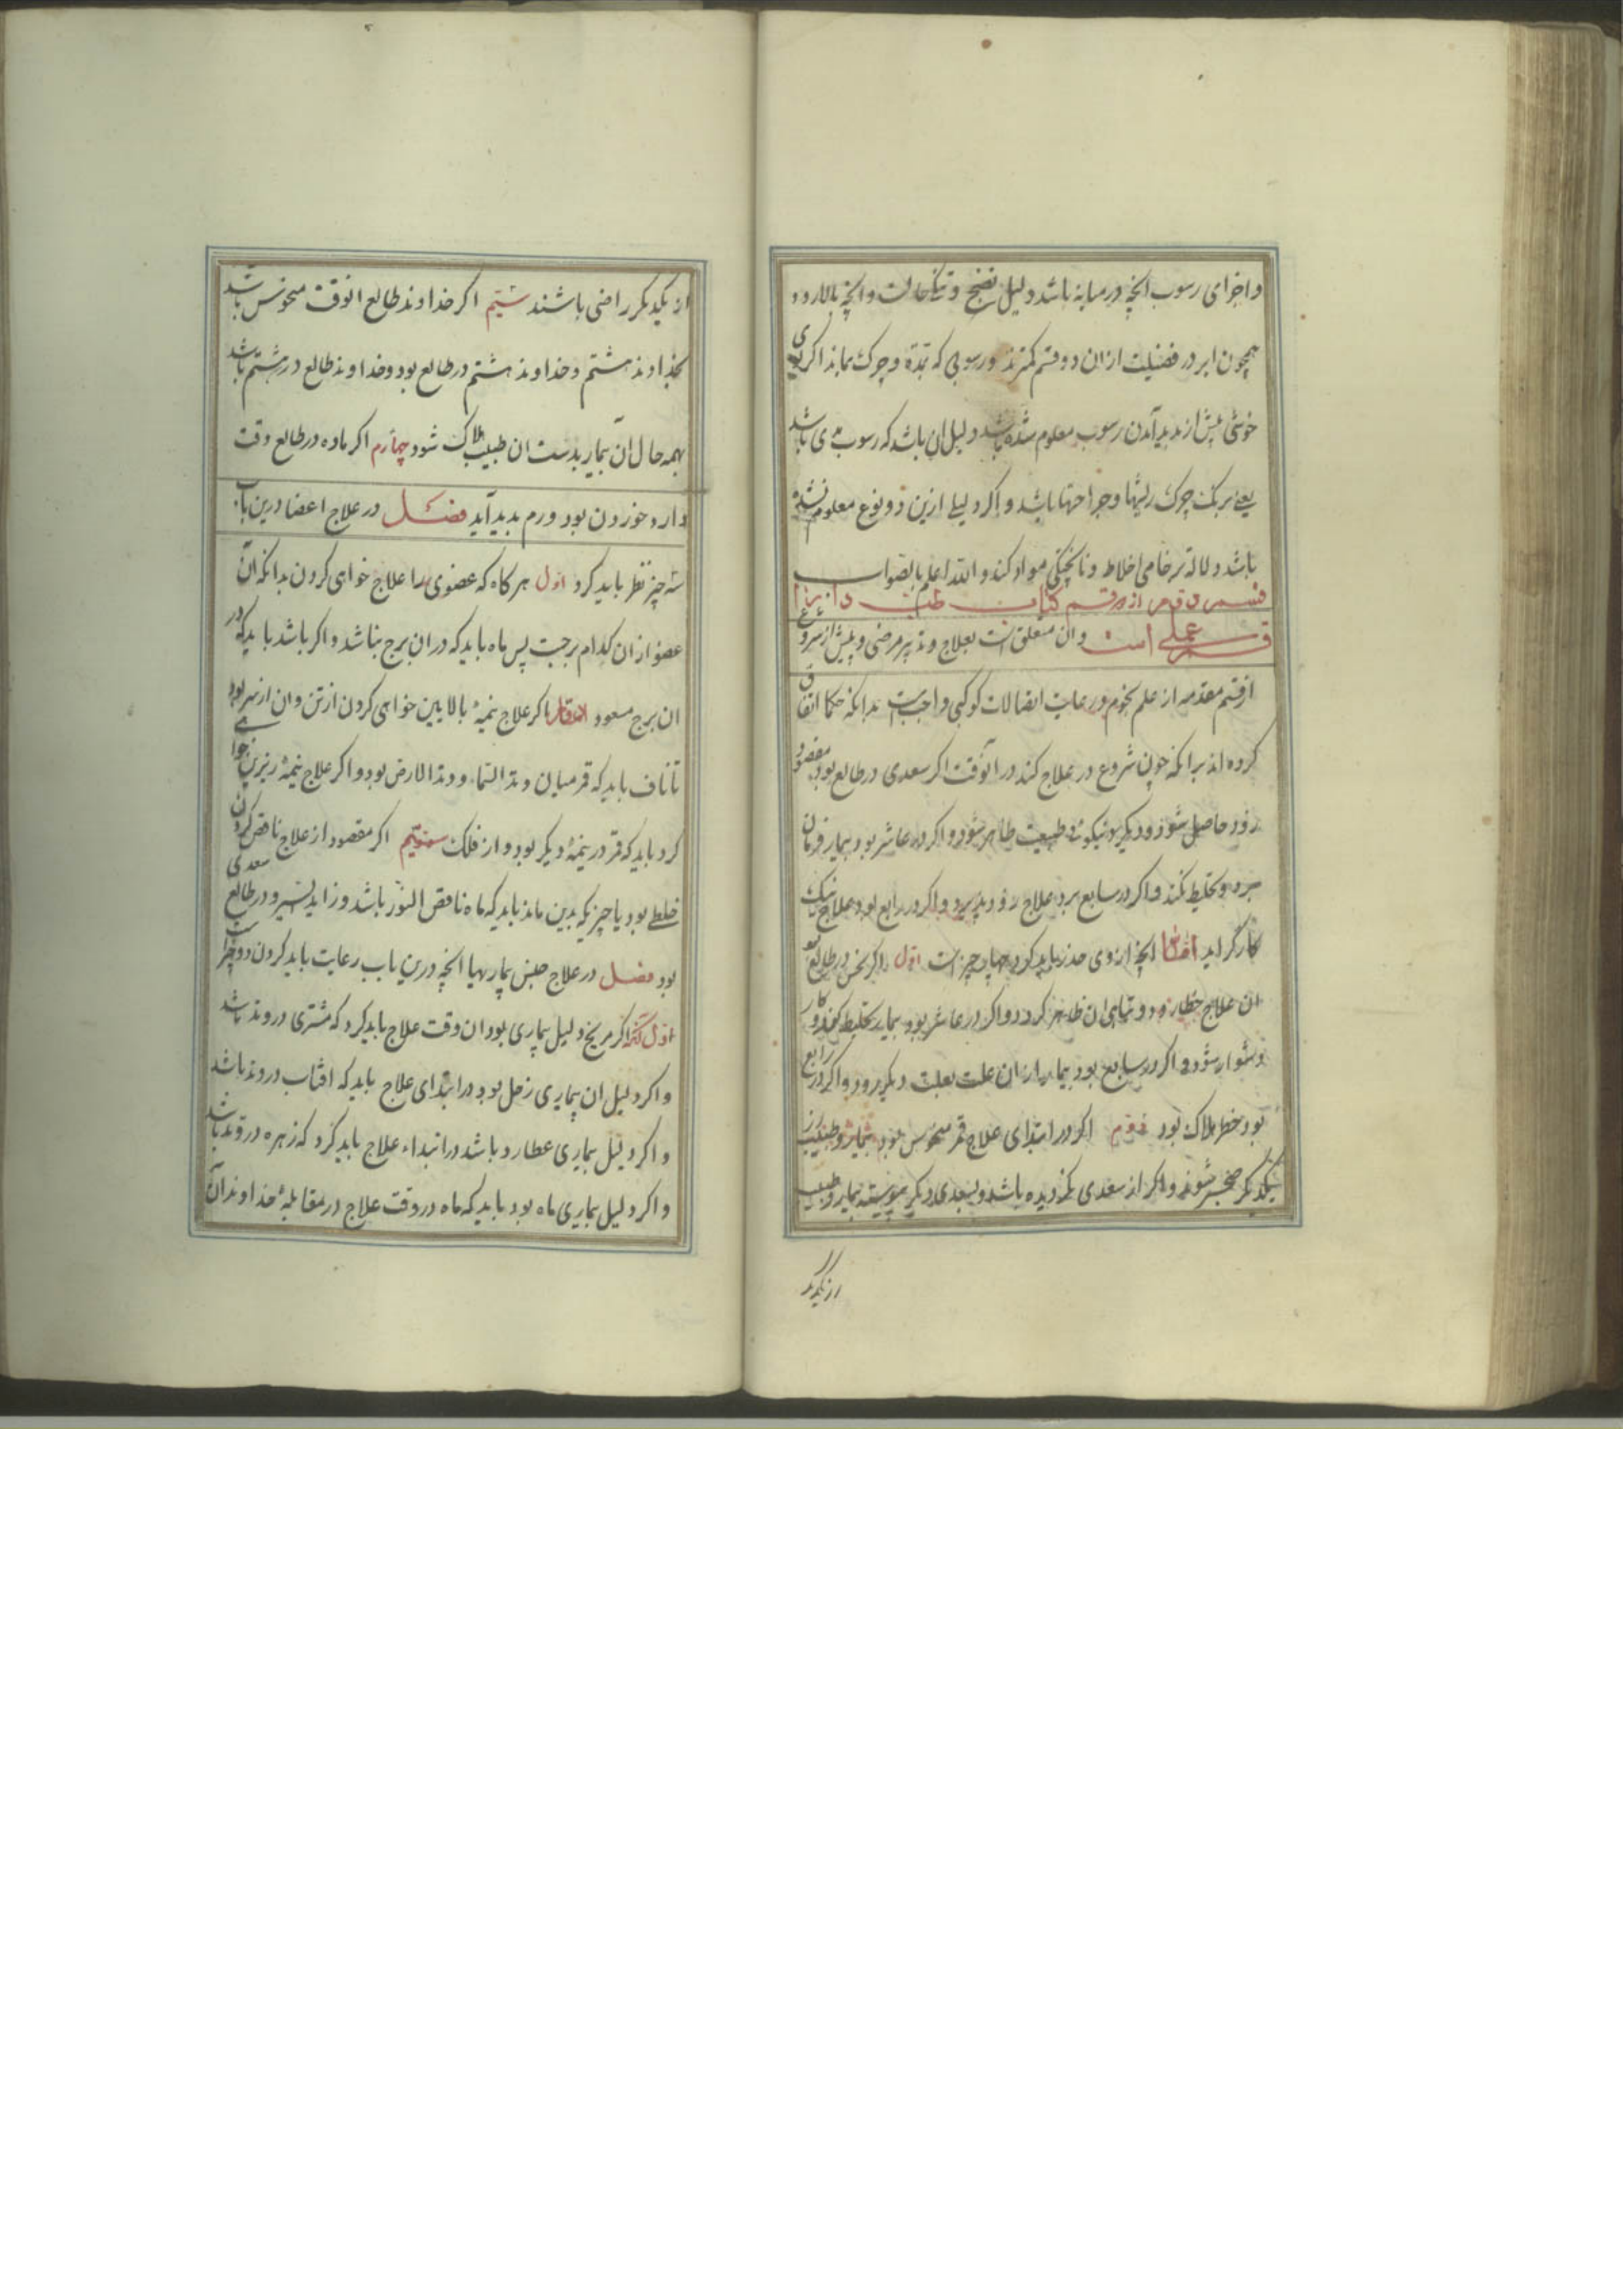 واجزای رسوب انچه درمیانه باشد دلیل نضج و نیکی حالت وانچه بالا رود
همچون ابر در فضیلت ازان دو قسم کمترند ورسوبی که بمدّه و چرک بماند اکر
خوشی پیش از پدید آمدن رسوب معلوم شده باشد دلیل ان باشد که رسوب باشد
یعنی چرک ریشها وجراحتها باشد و اکر دلیلی ازین دو نوع معلوم نشده
باشد دلالة بر خامی اخلاط و ناپختگی مواد کند والله اعلم بالصواب
قسم دوم از کتاب طب
قسم عملی است وان متعلق است بعلاج وتدبیر مرضی و پیش از شروع
ازقسم مقدمه از علم نجوم ورعایت اتصالات کوکبی واجبست بدانکه حکما اتفاق
کرده اند برانکه چون شروع در علاج کند درانوقت اکر سعدی در طالع بود مقصود
زود حاصل شود ودیگر طبیعت ظاهر شود و اکر در عاشر بود بیمار فرمان
برد و تخلیط نکند و اکر در سابع بود علاج زود پذیرد و اکر در رابع بود علاج نیک
کارکر اید امّا انچه ازوی حذر باید کرد چهار چیز است اول اکر نحس در طالع بو
ان علاج خطا رود و تباهی ان ظاهر کردد و اکر در عاشر بود بیمار تخلیط کند و کار
دشوار شود و اکر در سابع بود بیمار ازان علت بعلت دیکر رود و اکر در رابع
بود خطر هلاک بود دوم اکر در ابتدای علاج قمر منحوس بود بیمار و طبیب از
یکدیکر ضجر شوند و اکر از سعدی کردیده باشد و بسعدی دیکر پیوسته بیمار و طبیب
ازیکدیگر
از یکدیکر راضی باشند سیّم اکر خداوند طالع انوقت منحوس باشد
بخداوند هشتم و خداوند هشتم در طالع بود و خداوند طالع در هشتم باشد
بهمه حال آن بیمار بدست ان طبیب هلاک شود چهارم اکر ماه در طالع وقت
دارو خوردن بود ورم پدید آید فصل در علاج اعضا درین باب
سه چیز نظر باید کرد اول هر کاه که عضوی را علاج خواهی کردن بدانکه آن
عضو ازان کدام برجست پس ماه باید که در ان برج نباشد و اکر باشد باید که در
ان برج مسعود اکر علاج نیمهٔ بالایین خواهی کردن از تن وان از سر بود
تا ناف باید که قمر میان وتد السّماء و وتد الارض بود و اکر علاج نیمهٔ زیرین خواهی
کرد باید که قمر در نیمهٔ دیکر بود از فلک سیّم اکر مقصود از علاج ناقص کردن
خلطی بود یا چیزیکه بدین ماند باید که ماه ناقص النّور باشد و زاید السیر و در طالع سعدی
بود فصل در علاج جنس بیماریها انچه درین باب رعایت باید کردن دو چیز است
اول آنکه اکر مریخ دلیل بیماری بود ان وقت علاج باید کرد که مشتری در وتد باشد
و اکر دلیل ان بیماری زحل بود در ابتدای علاج باید که افتاب در وتد باشد
و اکر دلیل بیماری عطارد باشد در ابتداء علاج باید کرد که زهره در وتد باشد
و اکر دلیل بیماری ماه بود باید که ماه در وقت علاج در مقابلهٔ خداوند آن